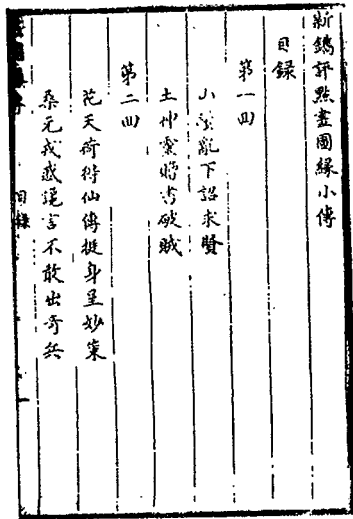 新鐫評點畫圖緣小傳
目錄
第一回
山蠻亂下詔求賢
土神靈贈書破賊
第二回
花天荷得仙傳挺身呈妙策
桑元戎惑謊言不敢出奇兵
目錄